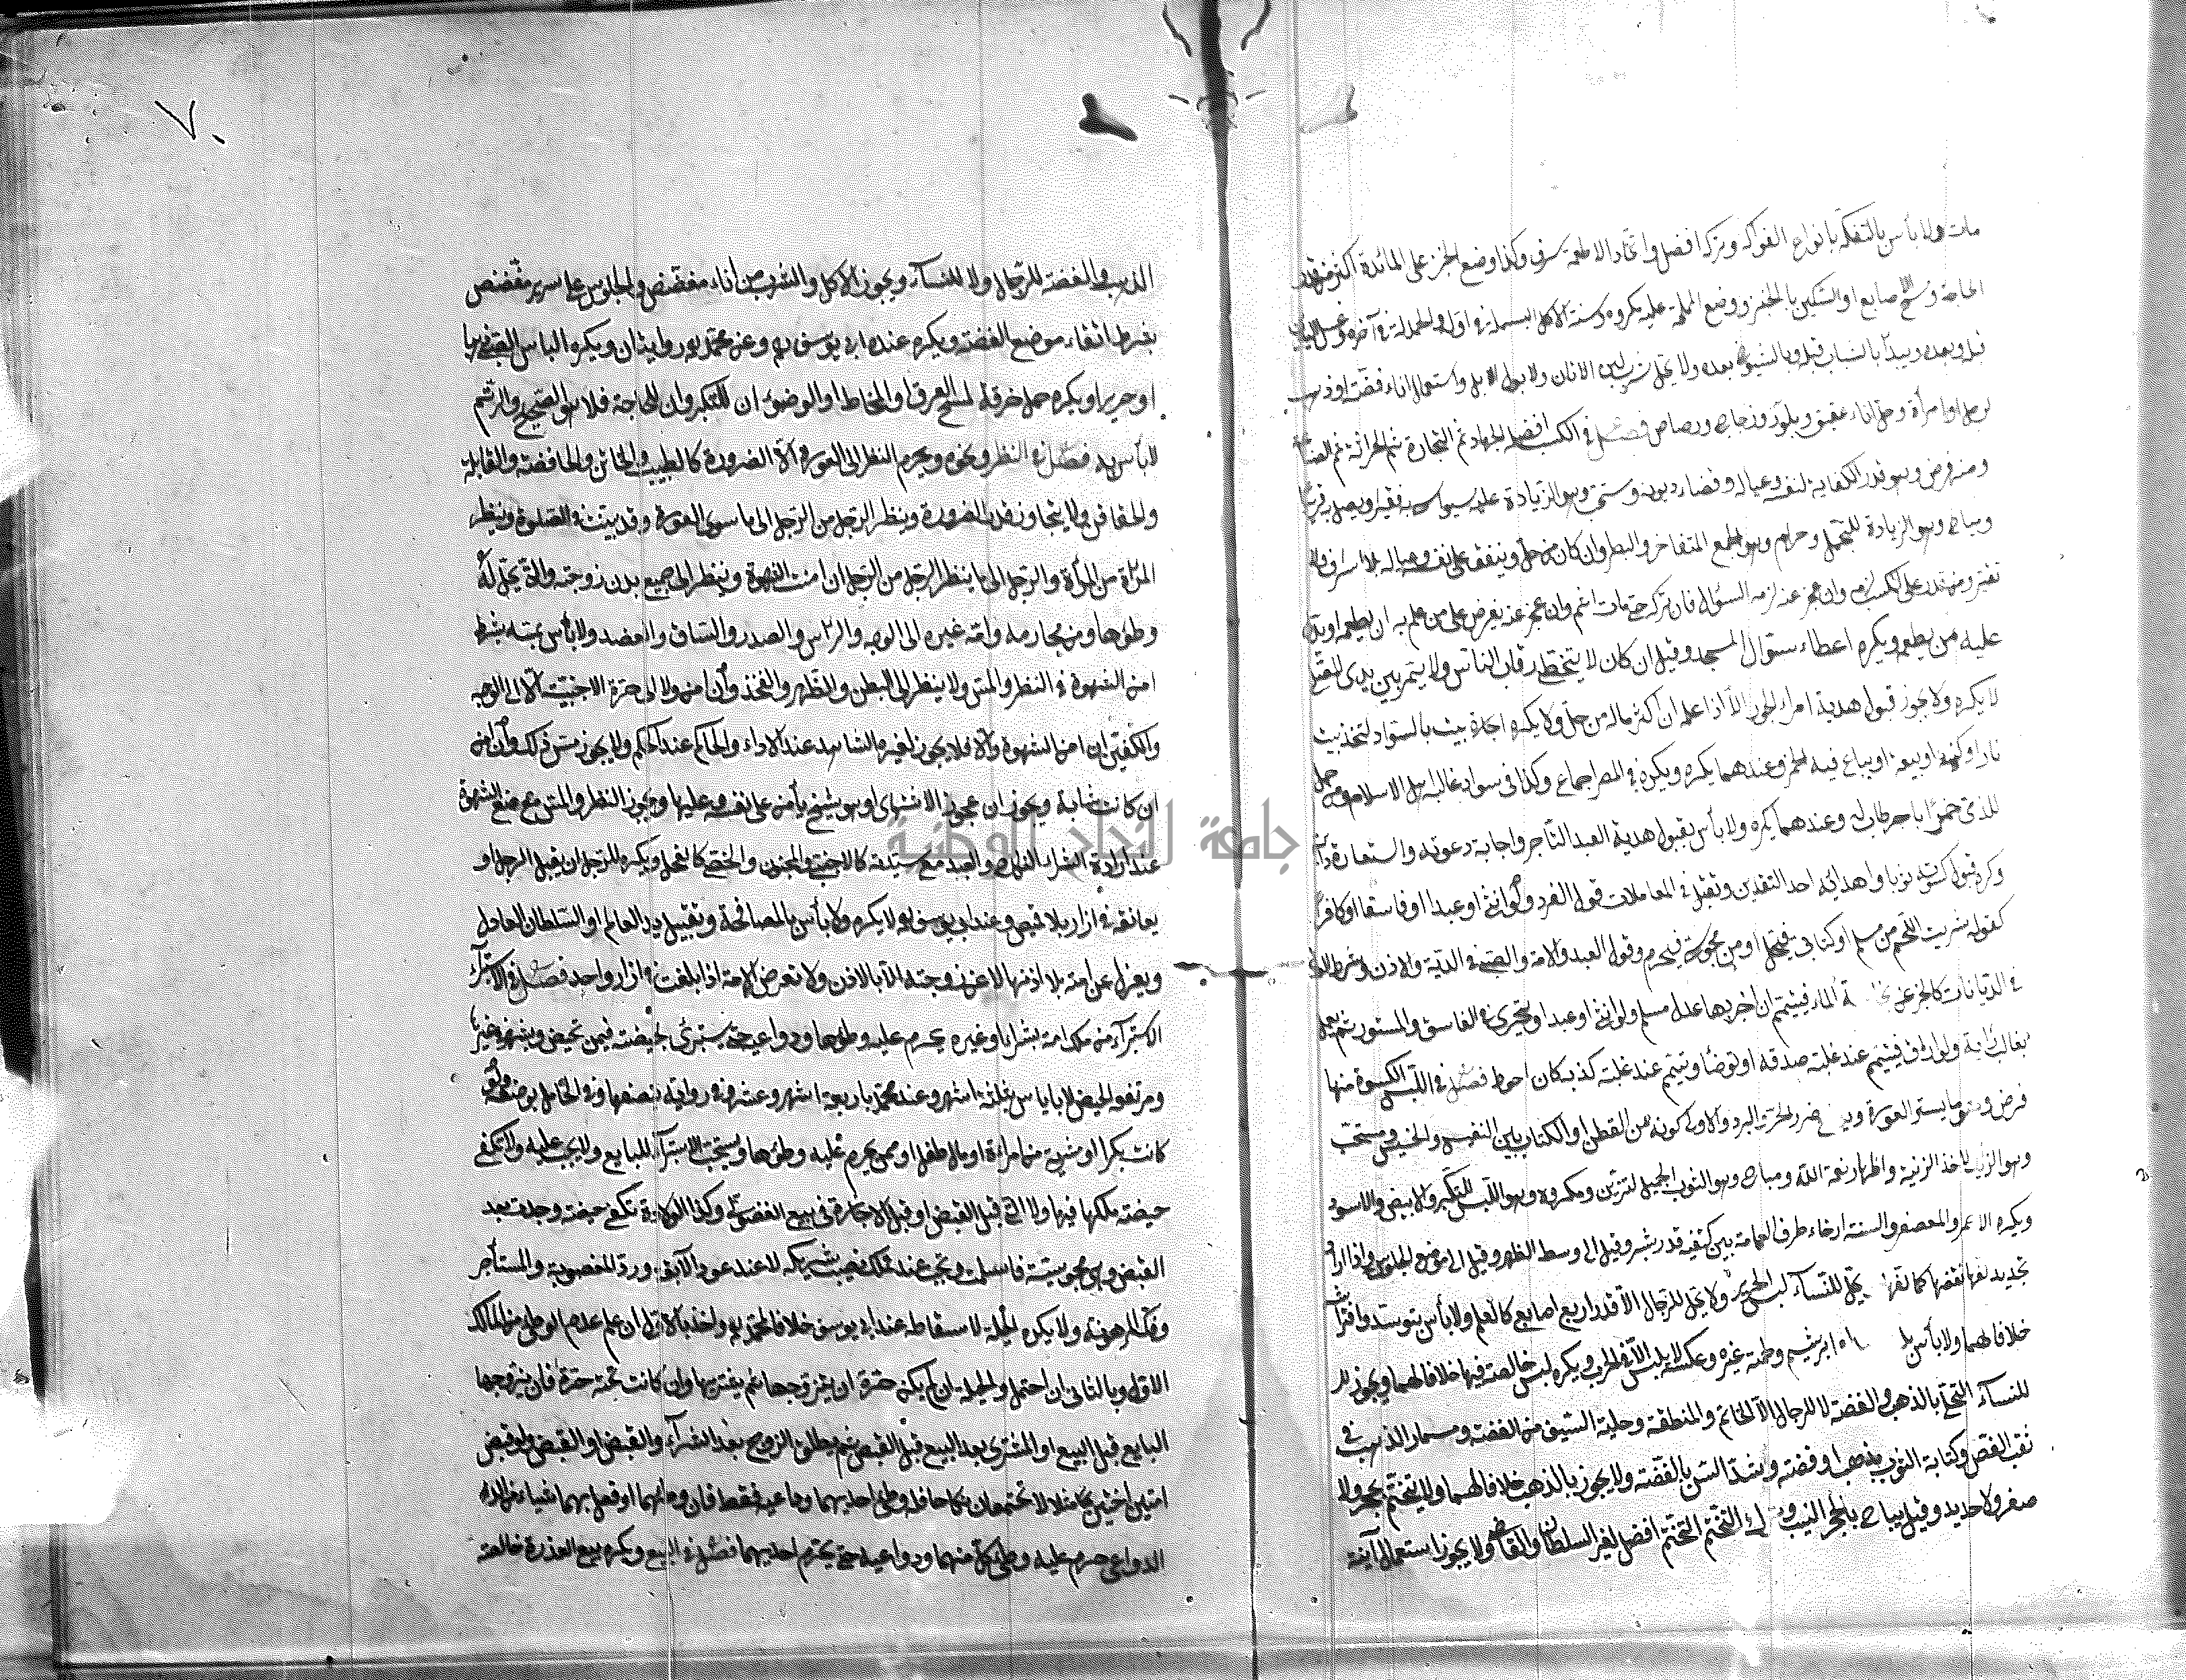 مات ولا بأس بالتفكه بانواع الفواكه وتركه افضل واتخاذ الاطعمة سرف وكذا وضع الخبز على المائدة اكثر من قدر
الحاجة ومسح الاصابع او السكين بالخبز ووضع المملحة عليه مكروه وسنة الاكل البسملة في اوله والحمدلة في آخره وغسل اليدين
قبله وبعده ويبدأ بالشباب قبله وبالشيوخ بعده ولا يحل شرب لبن الاتان ولا بول الابل واستعمال اناء فضة او ذهب
لرجل او امرأة وحل اناء عقيق وبلور وزجاج ورصاص فصل في الكسب افضله الجهاد ثم التجارة ثم الحراثة ثم الصناعة
ومنه فرض وهو قدر الكفاية لنفسه وعياله وقضاء ديونه ومستحب وهو الزيادة عليه ليواسي به فقيرا ويصل به قريبا
ومباح وهو الزيادة للتجمل وحرام وهو الجمع للتفاخر والبطر وان كان من حل وينفق على نفسه وعياله بلا اسراف ولا
تقتير ومن قدر على الكسب لزمه وان عجز عنه لزمه السؤال فان تركه حتى مات اثم وان عجز عنه يفرض على من علم به ان يطعمه او يدل
عليه من يطعمه ويكره اعطاء سؤال المسجد وقيل ان كان لا يتخطى رقاب الناس ولا يمر بين يدي المصلي
لا يكره ولا يجوز قبول هدية امراء الجور الا اذا علم ان اكثر ماله من حل ولا يكره اجارة بيت بالسواد ليتخذ بيت
نار او كنيسة او بيعة او يباع فيه الخمر وعندهما يكره ويكره في المصر اجماعا وكذا في سواد غالبه اهل الاسلام ومن حمل
لذمي خمرا باجر طاب له وعندهما يكره ولا بأس بقبول هدية العبد التاجر واجابة دعوته واستعارة دابته
وكره قبول كسوته ثوبا واهدائه احد النقدين ويقبل في المعاملات قول الفرد ولو انثى او عبدا او فاسقا او كافرا
كقوله شريت اللحم من مسلم او كتابي فيحل او من مجوسي فيحرم وقول العبد والامة والصبي في الهدية والاذن وشرط العدل
في الديانات كالخبر عن نجاسة الماء فيتيمم ان اخبر بها عدل مسلم ولو انثى او عبدا ويتحرى في الفاسق والمستور ثم يعمل
بغالب رأيه ولو اراق فيتيمم عند غلبة صدقه او توضأ وتيمم عند غلبة كذبه كان احوط فصل في اللبس الكسوة منها
فرض وهو ما يستر العورة ويدفع ضرر الحر والبرد والاولى كونه من القطن او الكتان بين النفيس والخسيس ومستحب
وهو الزائد لاخذ الزينة واظهار نعمة الله ومباح وهو الثوب الجميل للتزين ومكروه وهو اللبس للتكبر والابيض والاسود
ويكره الاحمر والمعصفر والسنة ارخاء طرف العمامة بين كتفيه قدر شبر وقيل الى وسط الظهر وقيل الى موضع الجلوس واذا اراد
تجديد لفها نقضها كما لفها يحل للنساء لبس الحرير ولا يحل للرجال الا قدر اربع اصابع كالعلم ولا بأس بتوسده وافتراشه
خلافا لهما ولا بأس بلبس ما سداه ابريشم ولحمته غيره وعكسه لا يلبس الا في الحرب ويكره لبس خالصه فيها خلافا لهما ويجوز
للنساء التحلي بالذهب والفضة لا للرجال الا الخاتم والمنطقة وحلية السيف من الفضة ومسمار الذهب في
ثقب الفص وكتابة الثوب بذهب او فضة وشد السن بالفضة ولا يجوز بالذهب خلافا لهما ولا يتختم بحجر ولا
صفر ولا حديد وقيل يباح بالحجر اليشب وترك التختم افضل لغير السلطان والقاضي ولا يجوز استعمال آنية
٧٠
الذهب والفضة للرجال ولا للنساء ويجوز الاكل والشرب من اناء مفضض والجلوس على سرير مفضض
بشرط اتقاء موضع الفضة ويكره عند ابي يوسف رح وعن محمد رح روايتان ويكره الباس الصبي ذهبا
او حريرا ويكره حمل خرقة لمسح العرق او المخاط او الوضوء ان للتكبر وان للحاجة فلا هو الصحيح والرتم
لا بأس به فصل في النظر ونحوه ويحرم النظر الى العورة الا الضرورة كالطبيب والخاتن والخافضة والقابلة
والحاقن ولا يتجاوز قدر الضرورة وينظر الرجل من الرجل الى ما سوى العورة وقد بينت في الصلوة وتنظر
المرأة من المرأة والرجل الى ما ينظر الرجل من الرجل ان امنت الشهوة وينظر الى جميع بدن زوجته وامته التي يحل له
وطؤها ومن محارمه وامة غيره الى الوجه والرأس والصدر والساق والعضد ولا بأس بمسه بشرط
امن الشهوة في النظر والمس ولا ينظر الى البطن والظهر والفخذ وان امن ولا الى حرة الاجنبية الا الى الوجه
والكفين ان امن الشهوة والا فلا يجوز لغير الشاهد عند الاداء والحاكم عند الحكم ولا يجوز مس ذلك وان امن
ان كانت شابة ويجوز ان عجوزا لا تشتهى او هو شيخ يأمن على نفسه وعليها ويجوز النظر والمس مع خوف الشهوة
عند ارادة الشراء او النكاح والعبد مع سيدته كالاجنبي والمجبوب والخصي كالفحل ويكره للرجل ان يقبل الرجل او
يعانقه في ازار بلا قميص وعند ابي يوسف رح لا يكره ولا بأس بالمصافحة وتقبيل يد العالم او السلطان العادل
ويعزل عن امته بلا اذنها لا عن زوجته الا بالاذن ولا تعرض الامة اذا بلغت في ازار واحد فصل في الاستبراء
الاستبراء من ملك امة بشراء او غيره يحرم عليه وطؤها ودواعيه حتى يستبرئ بحيضة فيمن تحيض وبشهر في غيرها
ومرتفعة الحيض لا باياس بثلثة اشهر وعند محمد باربعة اشهر وعشر وفي رواية بنصفها وفي الحامل بوضعه ولو
كانت بكرا او شرية من امرأة او مال طفل او ممن يحرم عليه وطؤها ويستحب الاستبراء للبايع ولا يجب عليه ولا تكفي
حيضة ملكها فيها ولا التي قبل القبض او قبل الاجازة في بيع الفضولي وكذا الولادة وتكفي حيضة وجدت بعد
القبض وهي مجوسية فاسلمت وتجب عند تملك نصيب شريكه لا عند عود الآبقة ورد المغصوبة والمستأجرة
وفك المرهونة ولا يكره الحيلة لاسقاطه عند ابي يوسف خلافا لمحمد رح واخذ بالاول ان علم عدم الوطئ من المالك
الاول وبالثاني ان احتمل والحيلة ان لم يكن تحته حرة ان يتزوجها ثم يشتريها وان كانت تحته حرة فان يتزوجها
البايع قبل البيع او المشتري بعد البيع قبل القبض ثم يطلق الزوج بعد الشراء والقبض او القبض ولو قبض
امتين اختين مثلا لا تجتمعان نكاحا فله وطئ احديهما ودواعيه فقط فان وطئهما او فعل بهما شيئا من
الدواعي حرم عليه وطئ كل منهما ودواعيه حتى يحرم احديهما فصل في البيع ويكره بيع العذرة خالصة
جامعة النجاح الوطنية